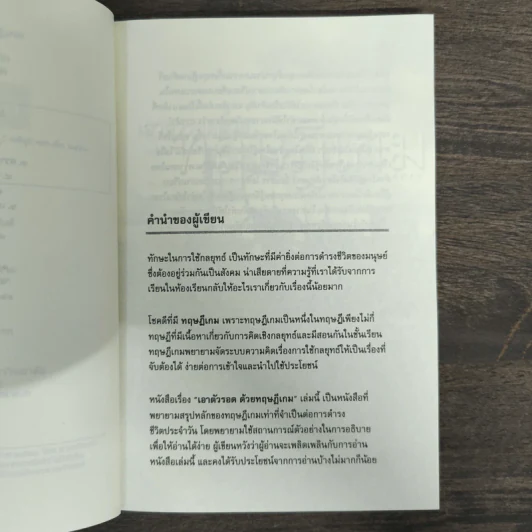 คำนำของผู้เขียน
ทักษะในการใช้กลยุทธ์ เป็นทักษะที่มีค่ายิ่งต่อการดำรงชีวิตของมนุษย์
ซึ่งต้องอยู่ร่วมกันเป็นสังคม น่าเสียดายที่ความรู้ที่เราได้รับจากการ
เรียนในห้องเรียนกลับให้อะไรเราเกี่ยวกับเรื่องนี้น้อยมาก
โชคดีที่มี ทฤษฎีเกม เพราะทฤษฎีเกมเป็นหนึ่งในทฤษฎีเพียงไม่กี่
ทฤษฎีที่มีเนื้อหาเกี่ยวกับการคิดเชิงกลยุทธ์และมีสอนกันในชั้นเรียน
ทฤษฎีเกมพยายามจัดระบบความคิดเรื่องการใช้กลยุทธ์ให้เป็นเรื่องที่
จับต้องได้ ง่ายต่อการเข้าใจและนำไปใช้ประโยชน์
หนังสือเรื่อง "เอาตัวรอด ด้วยทฤษฎีเกม" เล่มนี้ เป็นหนังสือที่
พยายามสรุปหลักของทฤษฎีเกมเท่าที่จำเป็นต่อการดำรง
ชีวิตประจำวัน โดยพยายามใช้สถานการณ์ตัวอย่างในการอธิบาย
เพื่อให้อ่านได้ง่าย ผู้เขียนหวังว่าผู้อ่านจะเพลิดเพลินกับการอ่าน
หนังสือเล่มนี้ และคงได้รับประโยชน์จากการอ่านบ้างไม่มากก็น้อย